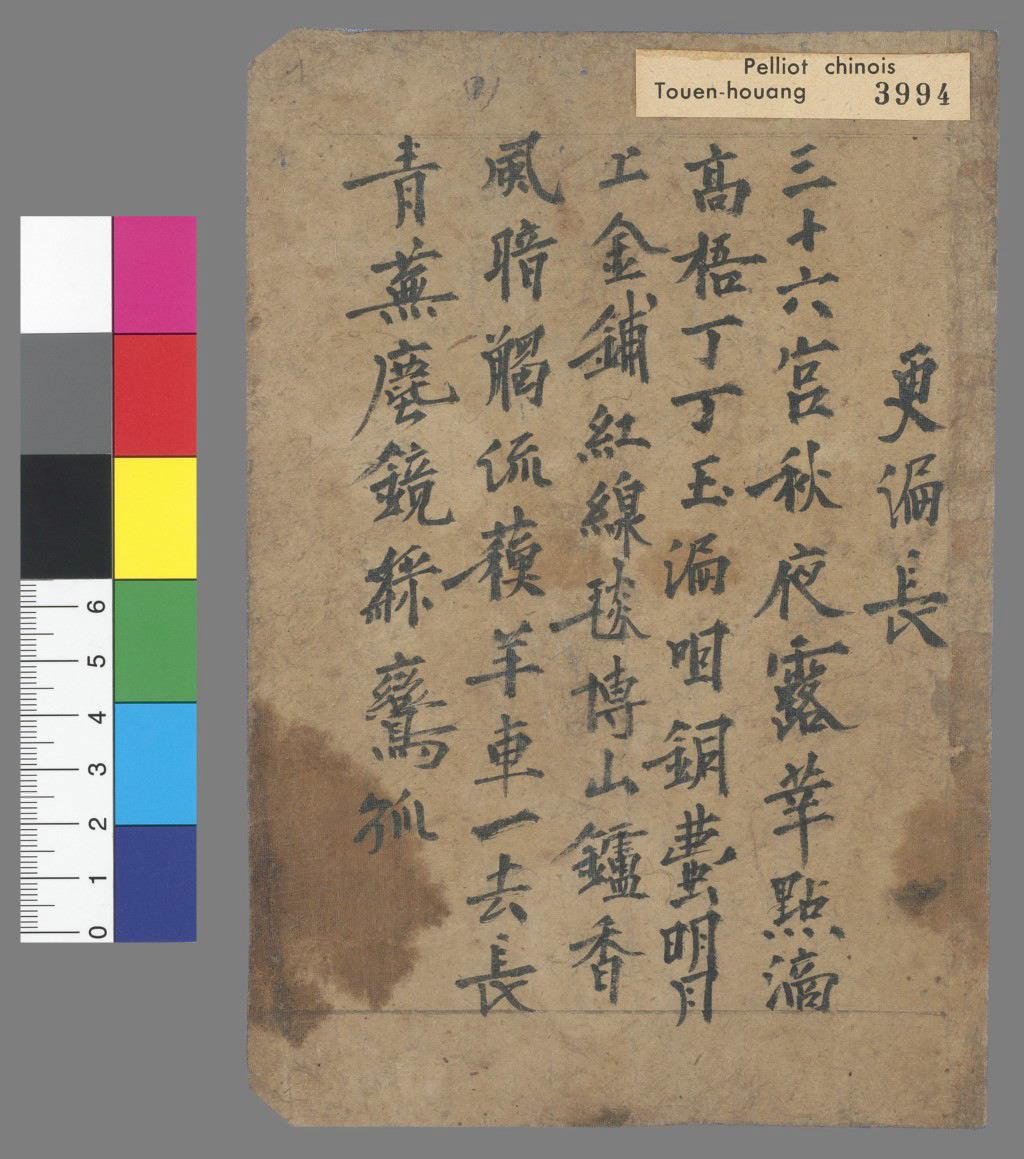 Pelliot chinois
Touen-houang 3994
更漏長
三十六宮秋夜露華點滴
高梧丁丁玉漏咽銅壺明月
上金鋪紅線毯博山鑪香
風暗觸流蘓羊車一去長
青蕪塵鏡綵鸞孤
0 1 2 3 4 5 6